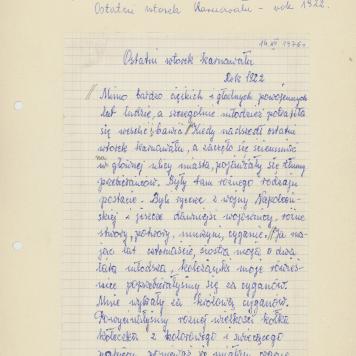 Ostatni wtorek Karnawału - rok 1922.
14 XII 1976 r.
Ostatni wtorek karnawału
Rok 1922
Mimo bardzo ciężkich i głodnych powojennych
lat ludzie, a szczególnie młodzież potrafiła
się weselić, bawić. Kiedy nadszedł ostatni
wtorek karnawału, a zaczęło się ściemniać
na w głównej ulicy miasta, pojawiały się tłumy
przebierańców. Były tam różnego rodzaju
postacie. Byli rycerze z wojny Napoleoń-
skiej i jeszcze dawniejsi wojownicy, różne
stwory, potwory, murzyni, cyganie. Ja ma-
jąc lat czternaście, siostra moja o dwa
lata młodsza, koleżanka moje rówieś-
nice poprzebierałyśmy się za cyganów.
Mnie wybrały za królową cyganów.
różnej wielkości kółka
kółeczka z kolorowego i